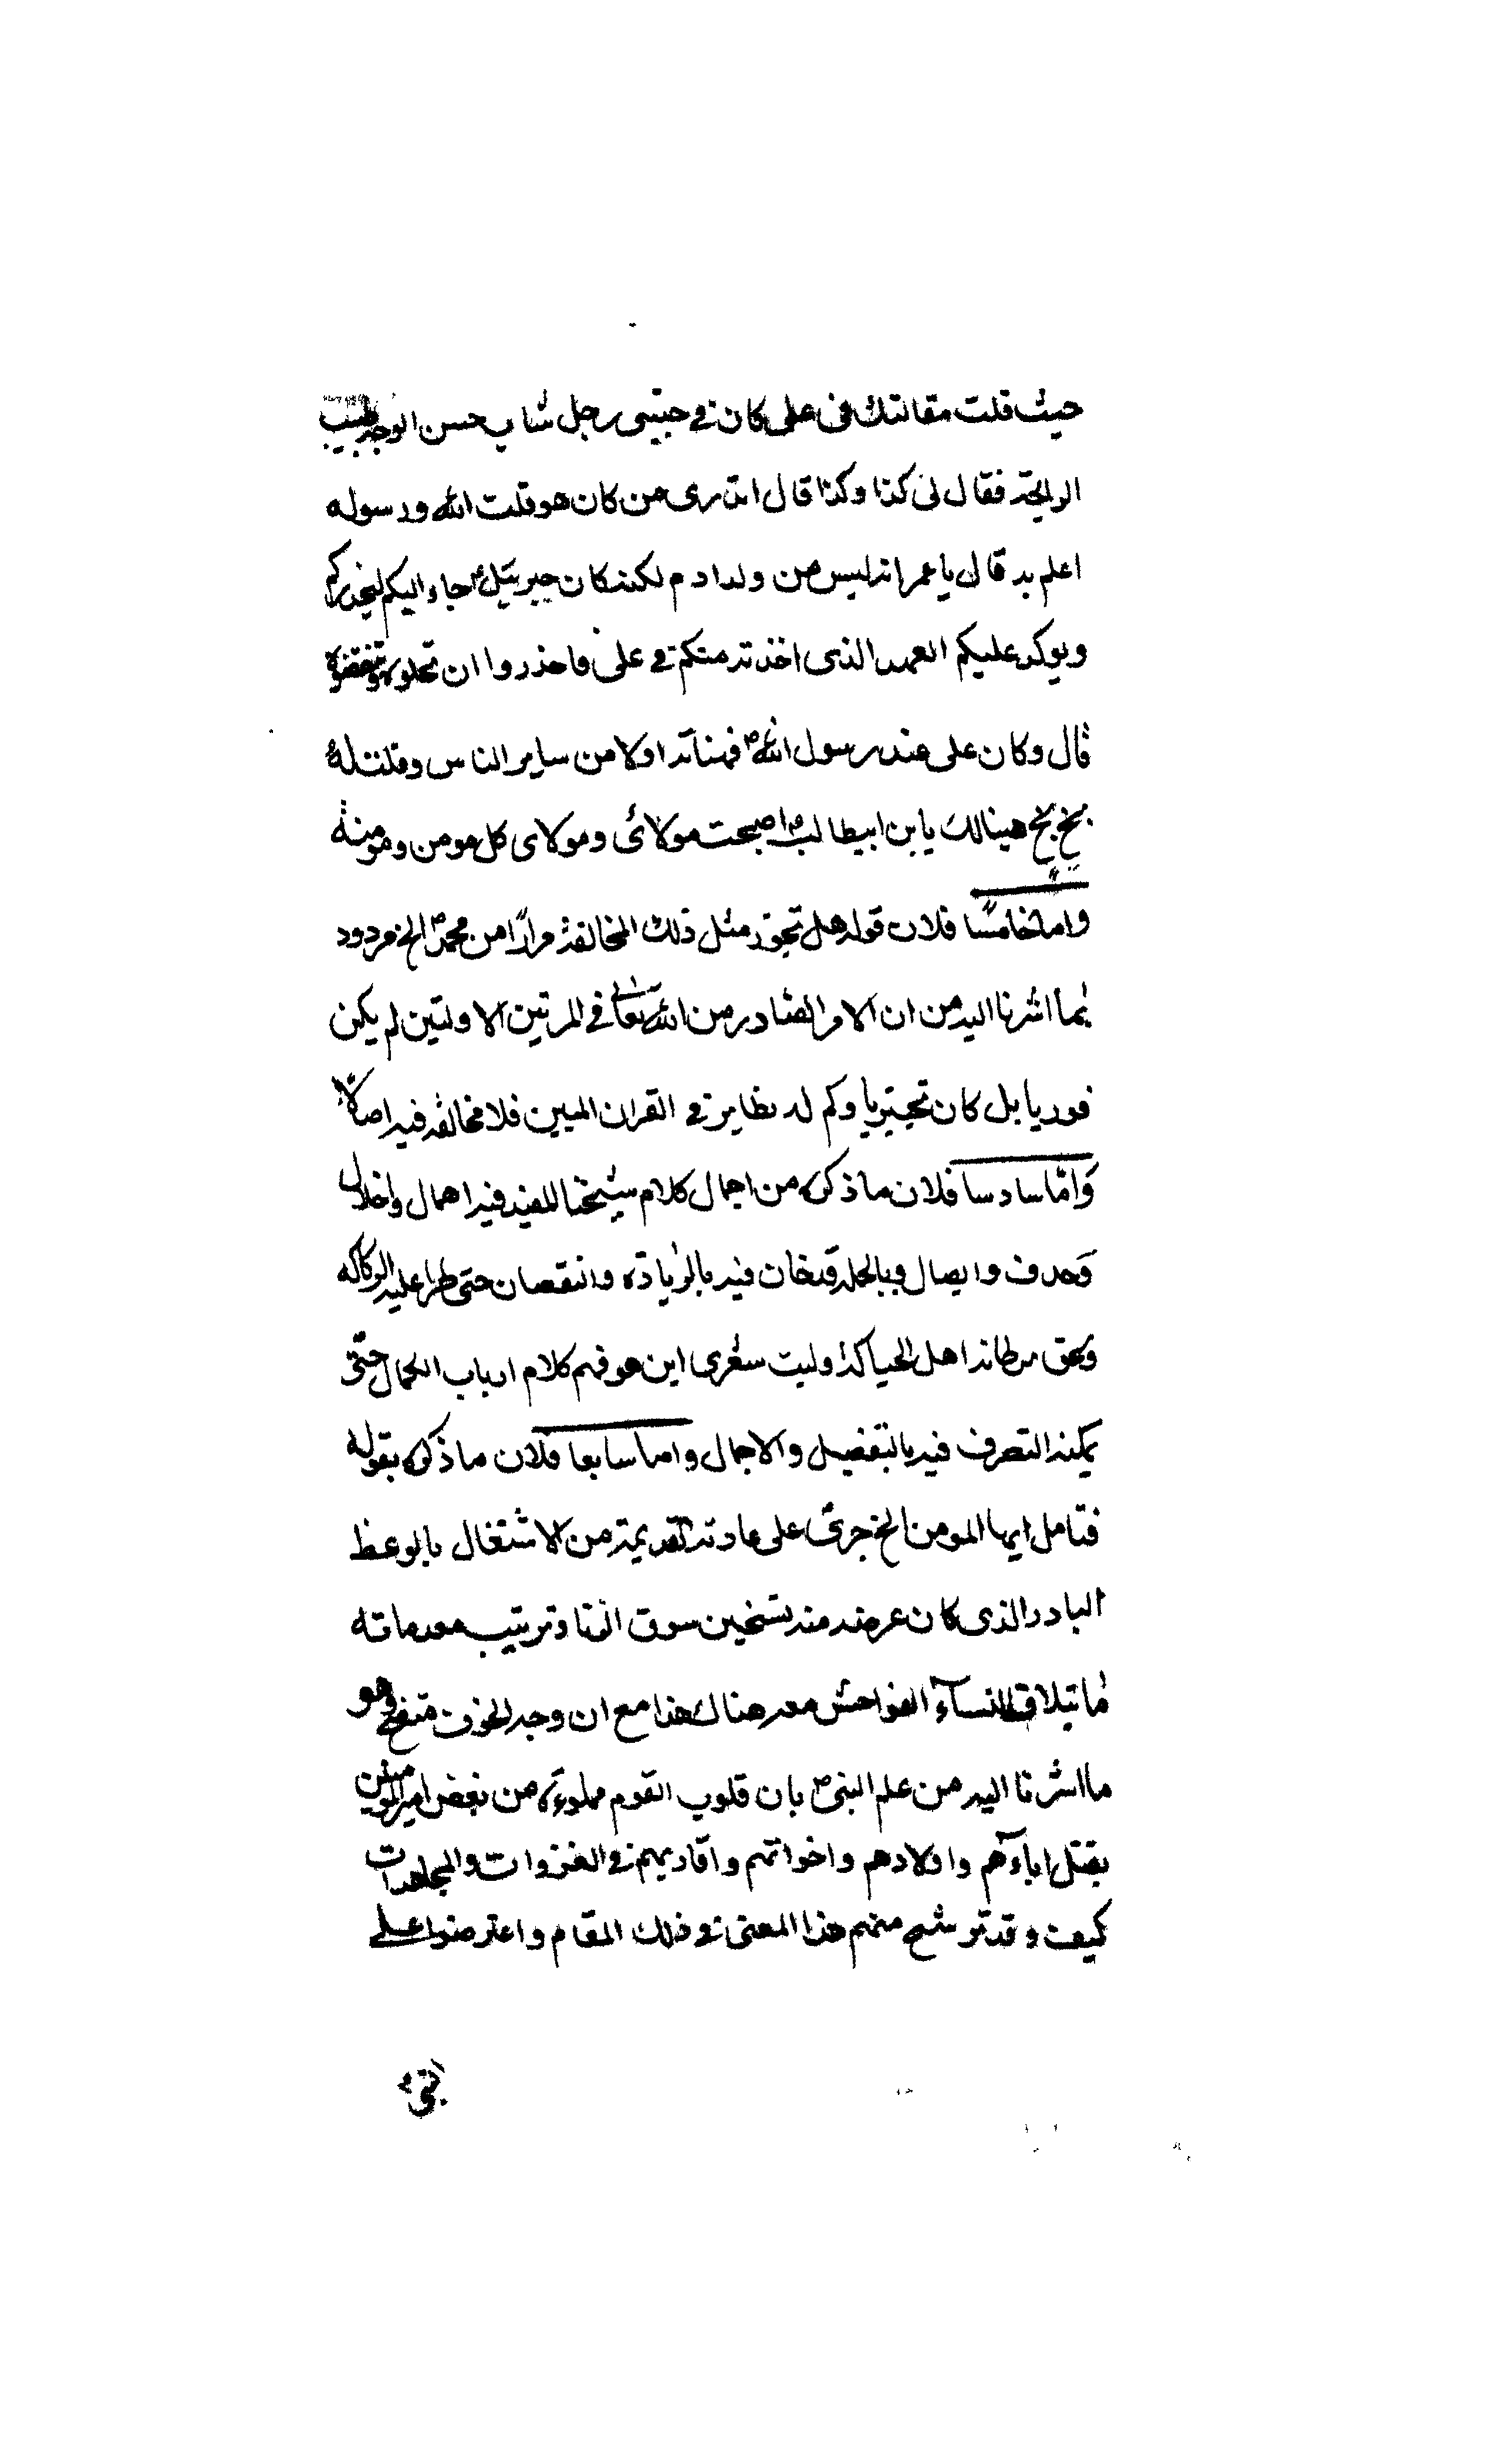 حيث قلت مقالتك فى على كان فى جنبى رجل شاب حسن الوجه طيب
الرايحة فقال لى كذا وكذا قال اتدرى من كان هو قلت الله ورسوله
اعلم به قال يا عمر انه ليس من ولد ادم لكنه كان جبرئيل جاء اليكم ليحذركم
ويوكد عليكم العهد الذى اخذته منكم فى على فاحذروا ان تحلوه وتنقضوه
قال وكان على عند رسول الله ص فهناته اولا من ساير الناس وقلت له
بخ بخ هنيئا لك يابن ابيطالب اصبحت مولائى ومولاى كل مومن ومومنة
واما خامسا فلان قوله هل تجوز مثل ذلك المخالفة مرارا من محمد ص الخ مردود
بما اشرنا اليه من ان الامر الصادر من الله تعالى فى المرتين الاولتين لم يكن
فوريا بل كان تخييريا وكم له نظاير فى القران المبين فلا مخالفة فيه اصلا
وامّا سادسا فلان ما ذكره من اجمال كلام شيخنا المفيد فيه اهمال واخلال
وحذف وايصال وبالجملة قد خان فيه بالزيادة والنقصان حتى طرا عليه الركاكه
ولحق برطانة اهل الحياكة وليت شعرى اين هو فهم كلام ارباب الكمال حتى
يمكنه التصرف فيه بالتفصيل والاجمال واما سابعا فلان ما ذكره بقوله
فتامل ايها المومن الخ جرى على عادته القديمة من الاشتغال بالوعظ
البادر الذى كان غرضه منه تسخين سوق الغنا وترتيب مقدماته
ما تيلاق النسآء الفواحش معه هناك هذا مع ان وجه الخوف متضح وهو
ما اشرنا اليه من علم النبى ص بان قلوب القوم مملوءة من بغض امير المومنين
بقتل اباءهم واولادهم واخوانهم واقاربهم فى الغزوات والمجاهدات
كيف وقد ترشح منهم هذا المعنى فى ذلك المقام واعترضوا على